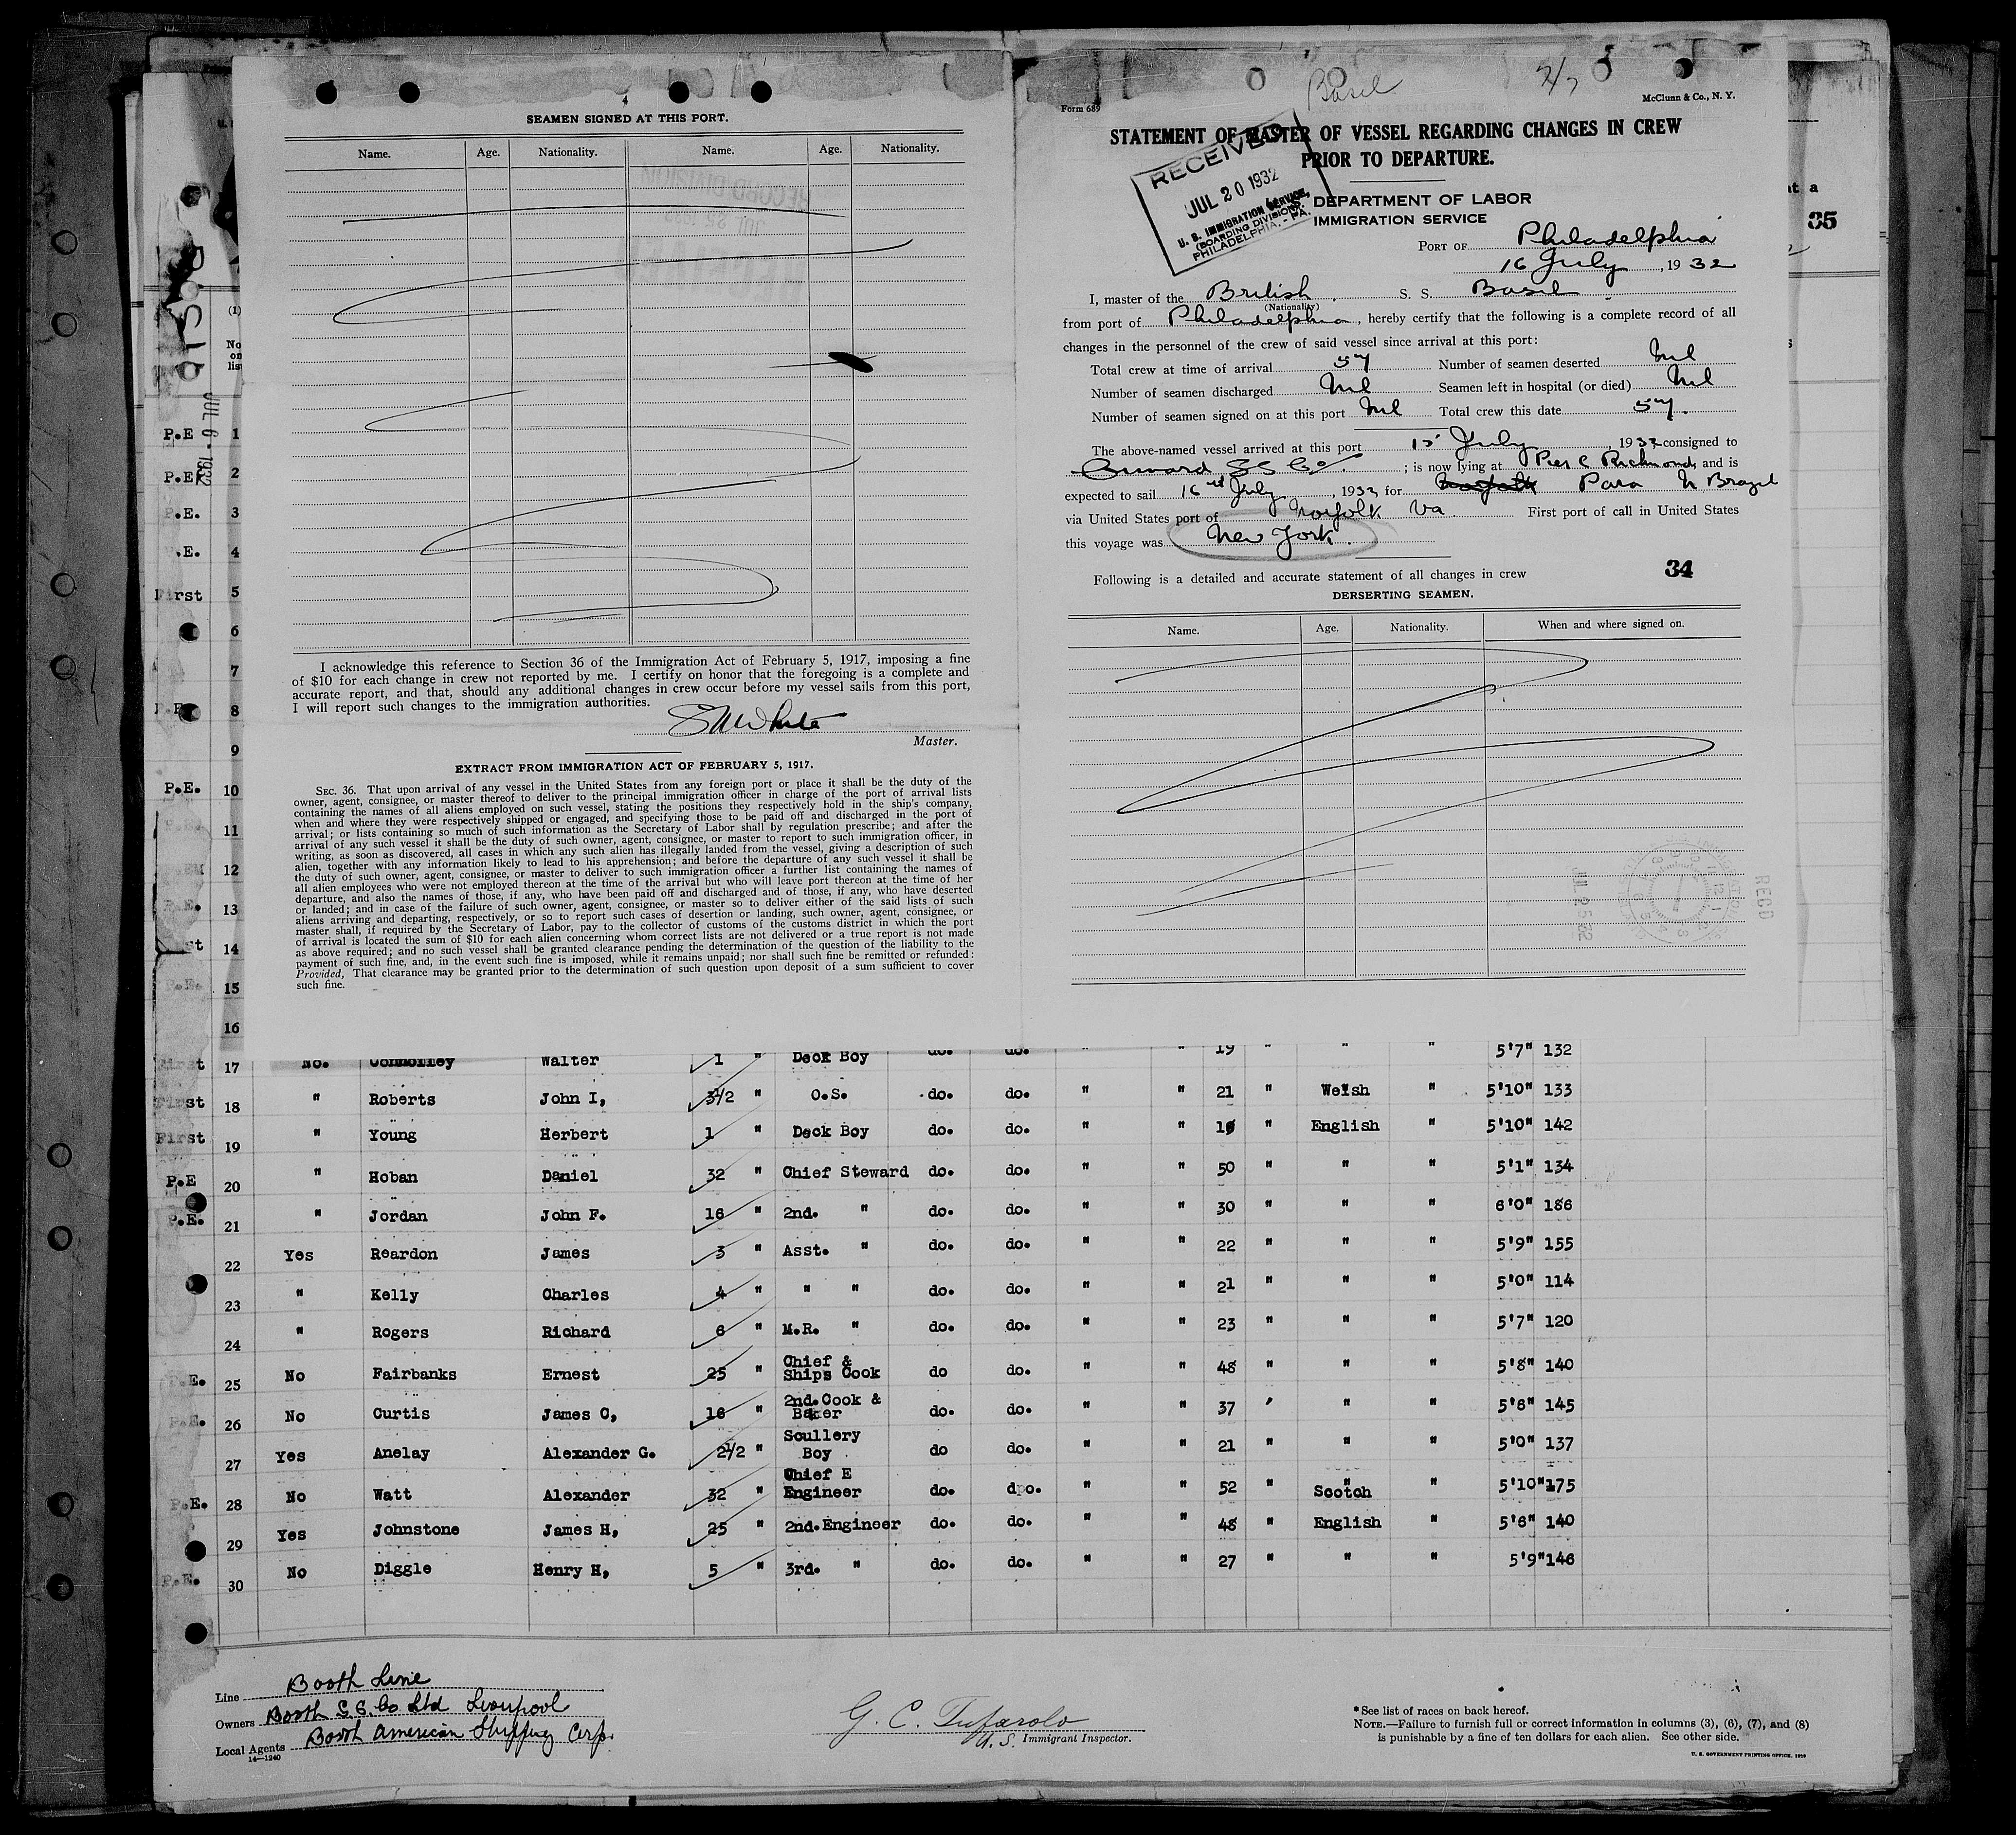 4
SEAMEN SIGNED AT THIS PORT.
Name. Age. Nationality. Name. Age. Nationality.
I acknowledge this reference to Section 36 of the Immigration Act of February 5, 1917, imposing a fine
of $10 for each change in crew not reported by me. I certify on honor that the foregoing is a complete and
accurate report, and that, should any additional changes in crew occur before my vessel sails from this port,
I will report such changes to the immigration authorities.
White
Master.
EXTRACT FROM IMMIGRATION ACT OF FEBRUARY 5, 1917.
SEC. 36. That upon arrival of any vessel in the United States from any foreign port or place it shall be the duty of the
owner, agent, consignee, or master thereof to deliver to the principal immigration officer in charge of the port of arrival lists
containing the names of all aliens employed on such vessel, stating the positions they respectively hold in the ship's company,
when and where they were respectively shipped or engaged, and specifying those to be paid off and discharged in the port of
arrival; or lists containing so much of such information as the Secretary of Labor shall by regulation prescribe; and after the
arrival of any such vessel it shall be the duty of such owner, agent, consignee, or master to report to such immigration officer, in
writing, as soon as discovered, all cases in which any such alien has illegally landed from the vessel, giving a description of such
alien, together with any information likely to lead to his apprehension; and before the departure of any such vessel it shall be
the duty of such owner, agent, consignee, or master to deliver to such immigration officer a further list containing the names of
all alien employees who were not employed thereon at the time of the arrival but who will leave port thereon at the time of her
departure, and also the names of those, if any, who have been paid off and discharged and of those, if any, who have deserted
or landed; and in case of the failure of such owner, agent, consignee, or master so to deliver either of the said lists of such
aliens arriving and departing, respectively, or so to report such cases of desertion or landing, such owner, agent, consignee, or
master shall, if required by the Secretary of Labor, pay to the collector of customs of the customs district in which the port
of arrival is located the sum of $10 for each alien concerning whom correct lists are not delivered or a true report is not made
as above required; and no such vessel shall be granted clearance pending the determination of the question of the liability to the
payment of such fine, and, in the event such fine is imposed, while it remains unpaid; nor shall such fine be remitted or refunded:
Provided, That clearance may be granted prior to the determination of such question upon deposit of a sum sufficient to cover
such fine.
Basil
Form 689 McClunn & Co., N. Y.
STATEMENT OF MASTER OF VESSEL REGARDING CHANGES IN CREW
PRIOR TO DEPARTURE.
RECEIVED
JUL 20 1932
U. S. IMMIGRATION SERVICE,
(BOARDING DIVISION)
PHILADELPHIA, - PA.
DEPARTMENT OF LABOR
IMMIGRATION SERVICE
PORT OF Philadelphia
16 July, 1932
I, master of the British S. S. Basil
(Nationality)
from port of Philadelphia, hereby certify that the following is a complete record of all
changes in the personnel of the crew of said vessel since arrival at this port:
Total crew at time of arrival 57 Number of seamen deserted Nil
Number of seamen discharged Nil Seamen left in hospital (or died) Nil
Number of seamen signed on at this port Nil Total crew this date 57.
The above-named vessel arrived at this port 15 July, 1932 consigned to
Cunard SS Co. ; is now lying at Pier C Richmond, and is
expected to sail 16th July, 1932, for Norfolk Para N Brazil
via United States port of Norfolk Va. First port of call in United States
this voyage was New York.
Following is a detailed and accurate statement of all changes in crew 34
DERSERTING SEAMEN.
Name. Age. Nationality. When and where signed on.
JUL 25 32
RECD
35
Basil
JUL 6 - 1932
(1)
No
on
list
P.E 1
P.E 2
P.E. 3
.E. 4
First 5
6
7
8
9
P.E. 10
P.E. 11
12
P.E. 13
st 14
P.E. 15
16
First 17 No. Connolley Walter 1 " Deck Boy do. do. " " 19 " " " 5'7" 132
First 18 " Roberts John I, 3½ " O.S. do. do. " " 21 " Welsh " 5'10" 133
First 19 " Young Herbert 1 " Deck Boy do. do. " " 19 " English " 5'10" 142
P.E 20 " Hoban Daniel 32 " Chief Steward do. do. " " 50 " " " 5'1" 134
P.E. 21 " Jordan John F. 16 " 2nd. " do. do. " " 30 " " " 6'0" 186
22 Yes Reardon James 3 " Asst. " do. do. " " 22 " " " 5'9" 155
23 " Kelly Charles 4 " " " do. do. " " 21 " " " 5'0" 114
24 " Rogers Richard 6 " M.R. " do. do. " " 23 " " " 5'7" 120
P.E. 25 No Fairbanks Ernest 25 " Chief & Ships Cook do do. " " 48 " " " 5'8" 140
P.E. 26 No Curtis James C, 16 " 2nd. Cook & Baker do. do. " " 37 ' " " 5'6" 145
27 Yes Anelay Alexander G. 2½ " Scullery Boy do do. " " 21 " " " 5'0" 137
P.E. 28 No Watt Alexander 32 " Chief E Engineer do. dpo. " " 52 " Scotch " 5'10" 175
29 Yes Johnstone James H, 25 " 2nd. Engineer do. do. " " 48 " English " 5'6" 140
P.E. 30 No Diggle Henry H, 5 " 3rd. " do. do. " " 27 " " " 5'9" 146
Line Booth Line
Owners Booth S.S. Co Ltd Liverpool
Local Agents Booth American Shipping Corp.
14—1240
G. C. Tufarolo
U. S. Immigrant Inspector.
* See list of races on back hereof.
NOTE.—Failure to furnish full or correct information in columns (3), (6), (7), and (8)
is punishable by a fine of ten dollars for each alien. See other side.
U. S. GOVERNMENT PRINTING OFFICE.